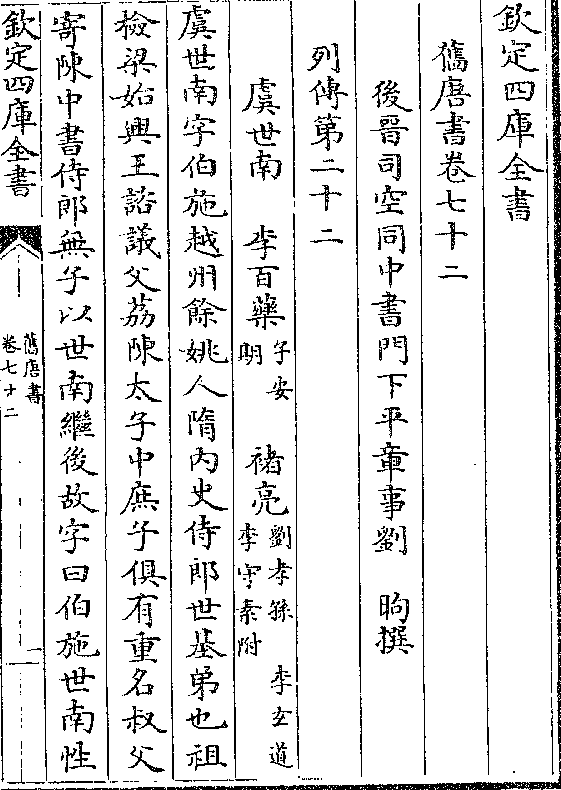 欽定四庫全書
舊唐書卷七十二
後晉司空同中書門下平章事劉 昫撰
列傳第二十二
虞世南 李百藥子安期 褚亮劉孝孫 李玄道 李守素附
虞世南字伯施越州餘姚人隋內史侍郎世基弟也祖
檢梁始興王諮議父荔陳太子中庶子俱有重名叔父
寄陳中書侍郎無子以世南繼後故字曰伯施世南性
欽定四庫全書
舊唐書
卷七十二
一